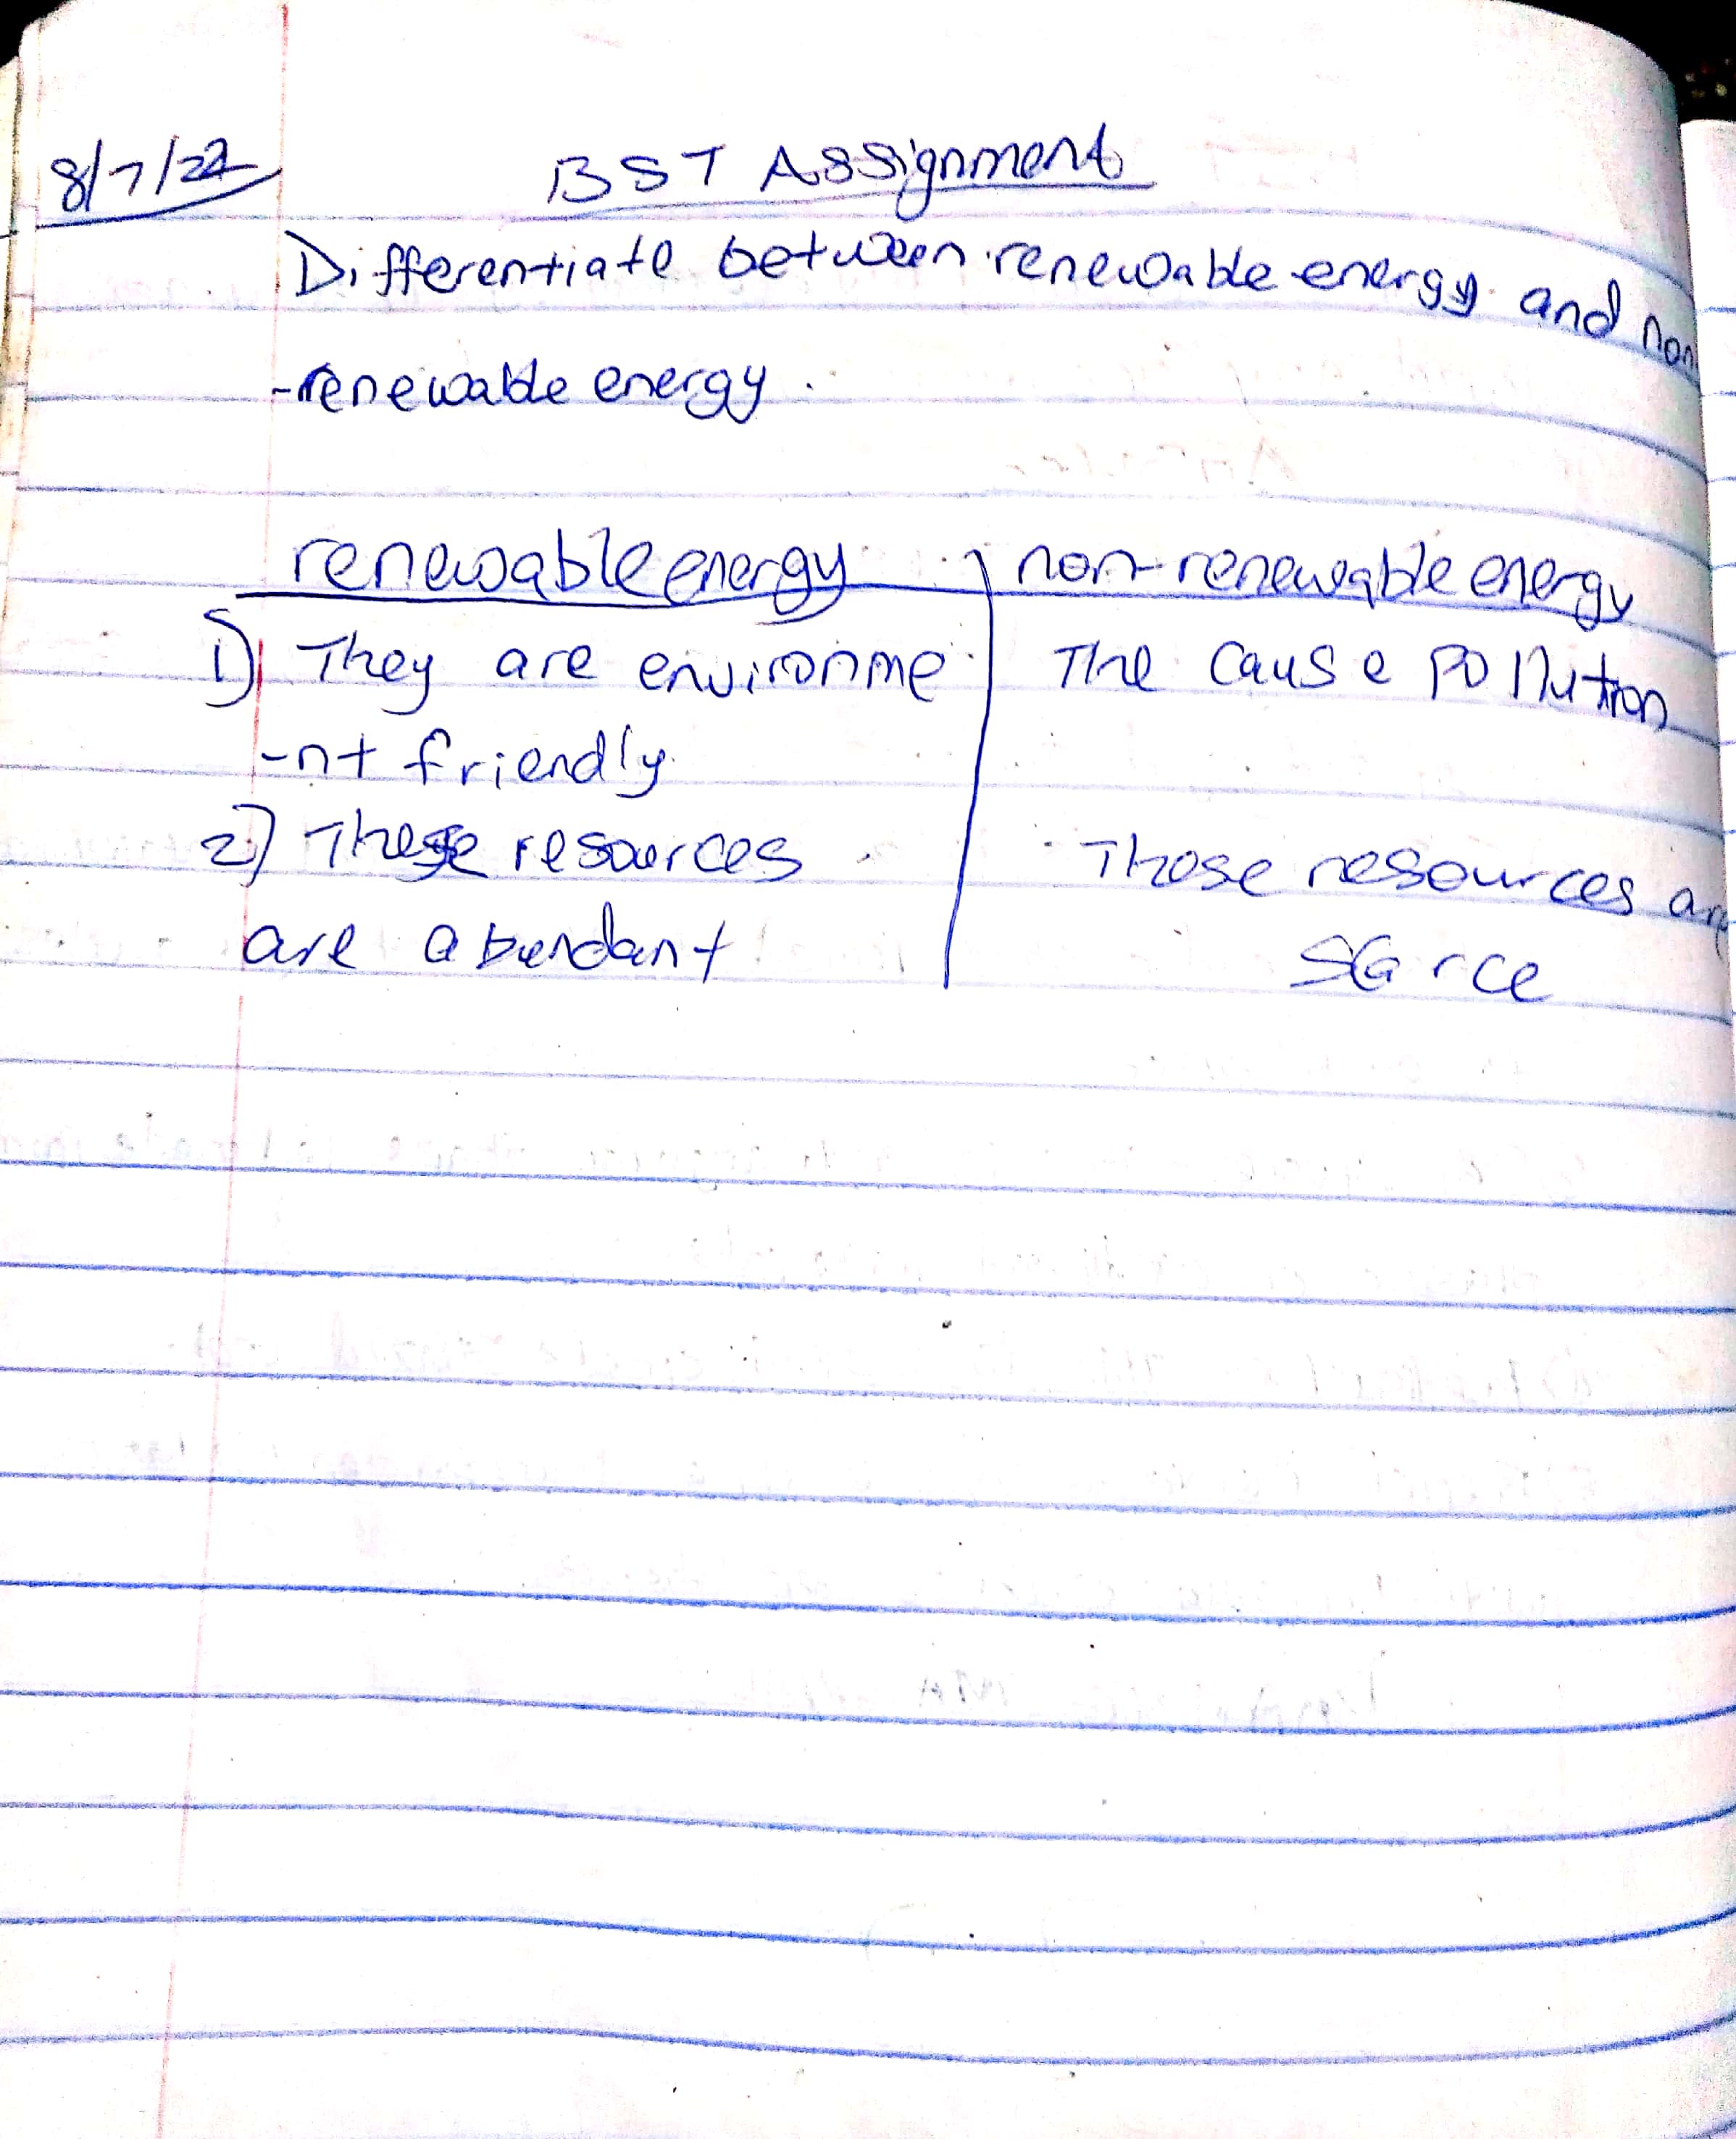 8/7/22 BST Assignment
Differentiate between renewable energy and non
-renewable energy.
renewable energy non-renewable energy
1) They are environme The cause pollution
-nt friendly.
2) These resources Those resources are
are abundant scarce